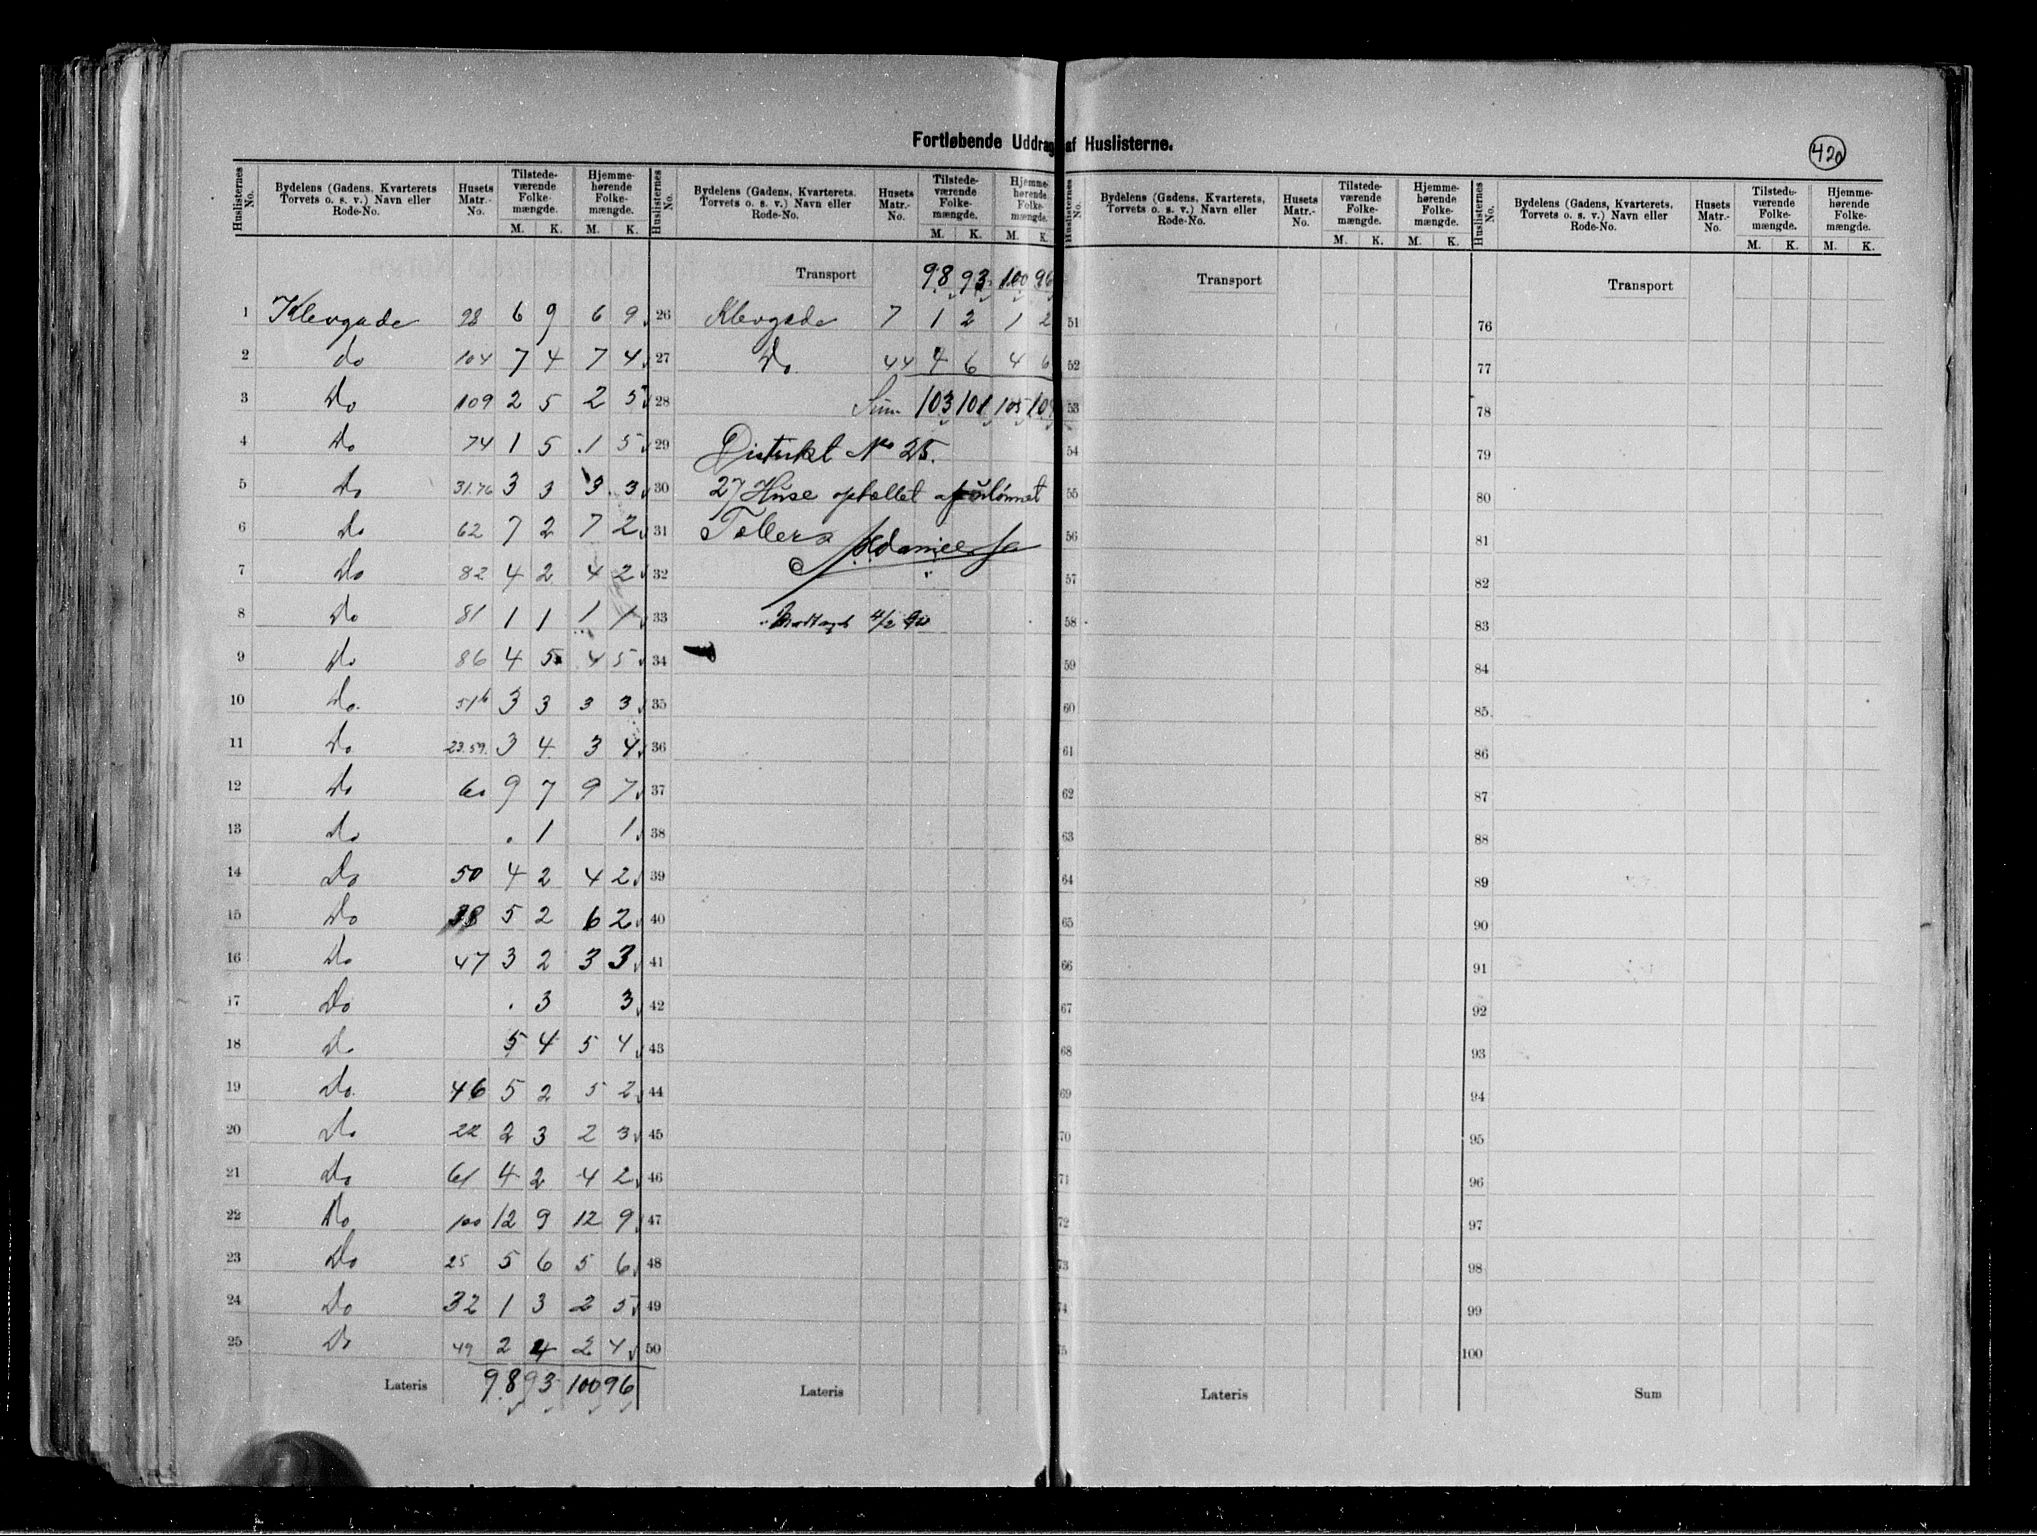 Fortløbende Uddrag af Huslisterne.
420
Huslisternes No. | Bydelens (Gadens, Kvarterets Torvets o. s. v.) Navn eller Rode-No. | Husets Matr.-No. | Tilstede-værende Folke-mængde. M. K. | Hjemme-hørende Folke-mængde. M. K.
1 Klevgade 98 6 9 6 9
2 do 104 7 4 7 4
3 Do 109 2 5 2 5
4 Do 74 1 5 1 5
5 Do 31.76 3 3 3 3
6 Do 62 7 2 7 2
7 Do 82 4 2 4 2
8 Do 81 1 1 1 1
9 Do 86 4 5 4 5
10 Do 51b 3 3 3 3
11 Do 23.59. 3 4 3 4
12 Do 60 9 7 9 7
13 Do . 1 1
14 Do 50 4 2 4 2
15 Do 38 5 2 6 2
16 Do 47 3 2 3 3
17 Do . 3 3
18 Do 5 4 5 4
19 Do 46 5 2 5 2
20 Do 22 2 3 2 3
21 Do 61 4 2 4 2
22 Do 100 12 9 12 9
23 Do 25 5 6 5 6
24 Do 32 1 3 2 5
25 Do 49 2 4 2 4
Lateris 98 93 100 96
Huslisternes No. | Bydelens (Gadens, Kvarterets, Torvets o. s. v.) Navn eller Rode-No. | Husets Matr.-No. | Tilstede-værende Folke-mængde. M. K. | Hjemme-hørende Folke-mængde. M. K.
Transport 98 93 100 96
26 Klevgade 7 1 2 1 2
27 Do 44 4 6 4 6
28 Sum 103 101 105 104
29 Distrikt No 25.
30 27 Huse optællet af ulønnet
31 Tæller
32
33 Modtaget 4/2 90
34
35
36
37
38
39
40
41
42
43
44
45
46
47
48
49
50
Lateris
Huslisternes No. | Bydelens (Gadens, Kvarterets, Torvets o. s. v.) Navn eller Rode-No. | Husets Matr.-No. | Tilstede-værende Folke-mængde. M. K. | Hjemme-hørende Folke-mængde. M. K.
Transport
51
52
53
54
55
56
57
58
59
60
61
62
63
64
65
66
67
68
69
70
71
72
73
74
75
Lateris
Huslisternes No. | Bydelens (Gadens, Kvarterets Torvets o. s. v.) Navn eller Rode-No. | Husets Matr.-No. | Tilstede-værende Folke-mængde. M. K. | Hjemme-hørende Folke-mængde. M. K.
Transport
76
77
78
79
80
81
82
83
84
85
86
87
88
89
90
91
92
93
94
95
96
97
98
99
100
Sum